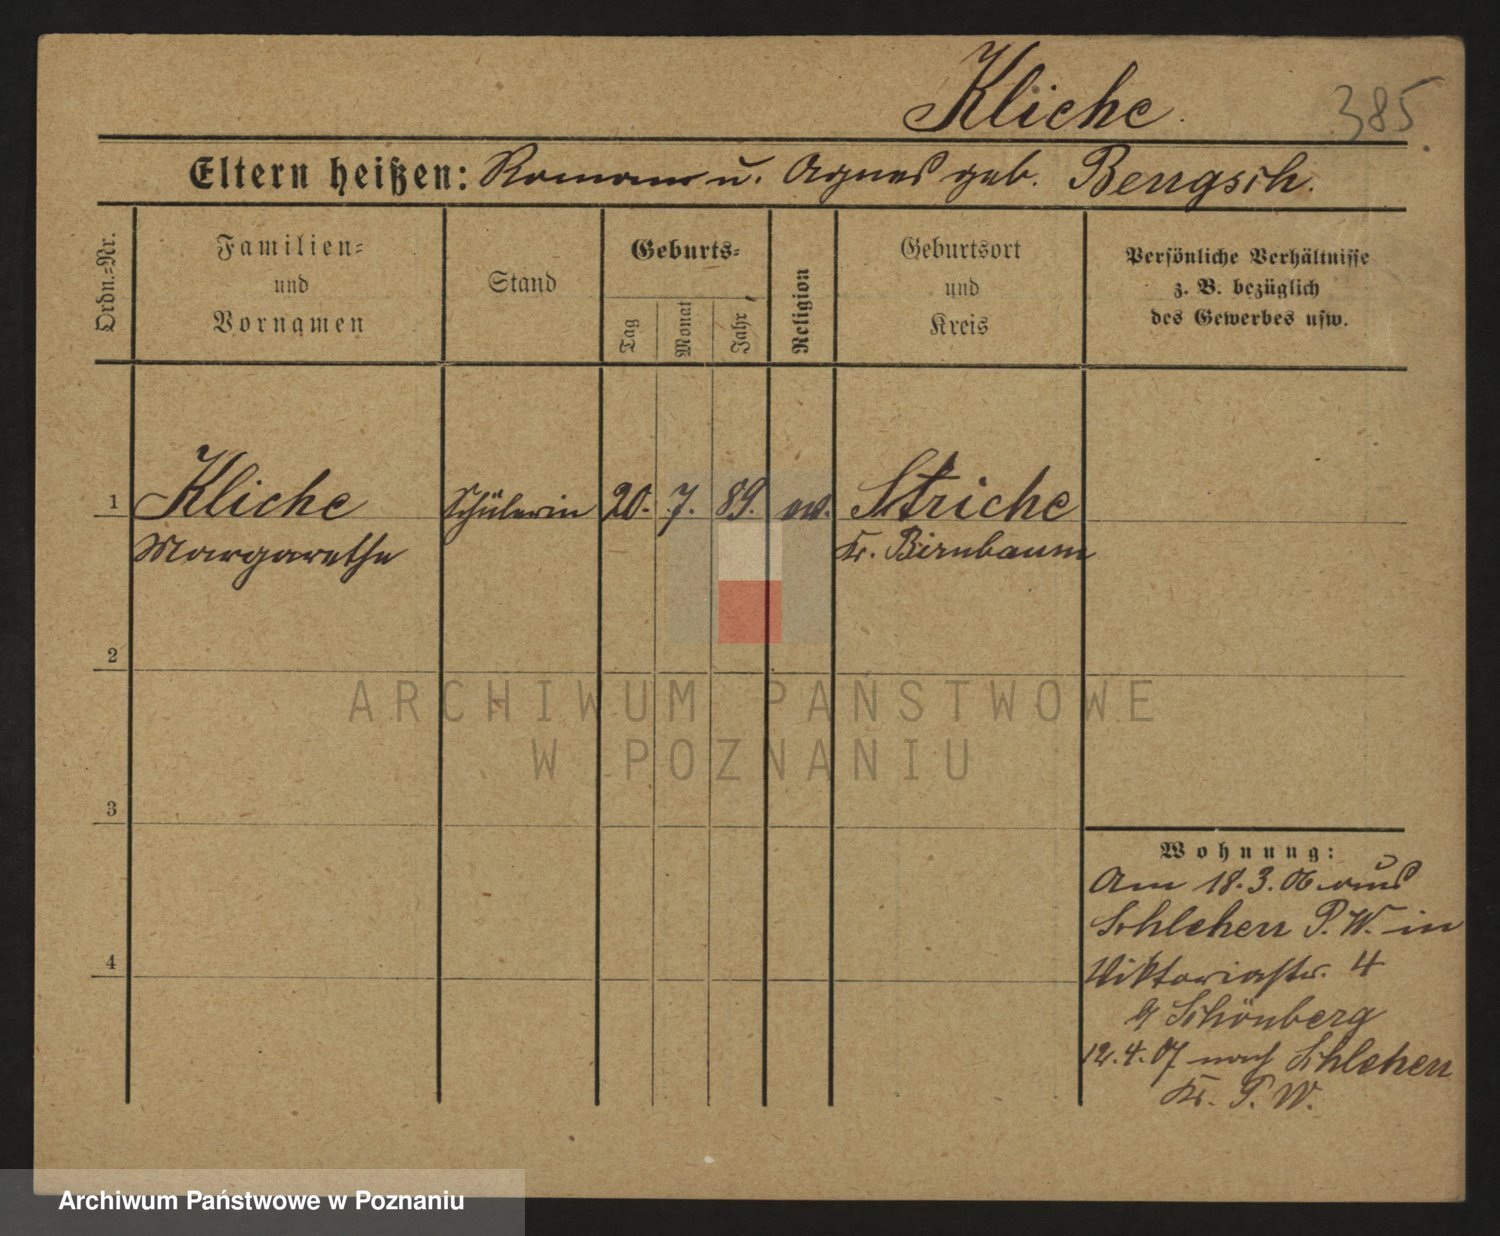 Kliche.
385.
Eltern heißen: Roman u. Agnes geb. Bengsch.
Ordn.=Nr.
Familien=
und
Vornamen
Stand
Geburts=
Tag
Monat
Jahr
Religion
Geburtsort
und
Kreis
Persönliche Verhältnisse
z. B. bezüglich
des Gewerbes usw.
1 Kliche Schülerin 20. 7. 89. ev. Striche
Margarethe Kr. Birnbaum
2
3
4
Wohnung:
Am 18.3.06 aus
Schlehen P. W. in
Viktoriastr. 4
Schönberg
12.4.07 nach Schlehen
Kr. P. W.
ARCHIWUM PAŃSTWOWE
W POZNANIU
Archiwum Państwowe w Poznaniu